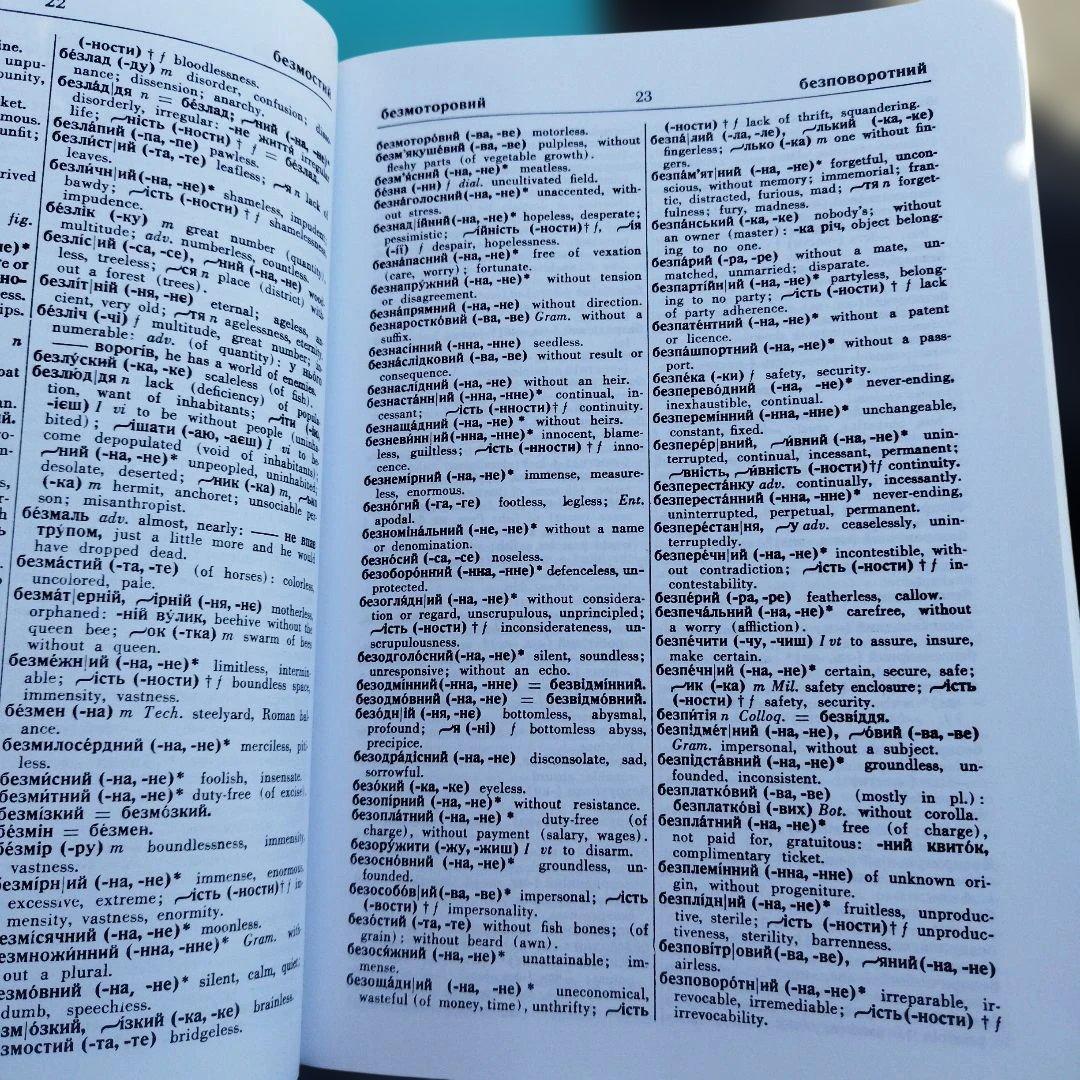 22
безмостий
(-ности) † f bloodlessness.
бе́злад (-ду) m disorder, confusion;
nance; dissension; anarchy.
безла́д|дя n = бе́злад;
disorderly, irregular: -не життя́ irregular
life; ⁓ність (-ности) † f = бе́злад.
безла́пий (-па, -пе) pawless.
безли́ст|ий (-та, -те) leafless; ⁓я n lack of
leaves.
безли́чн|ий (-на, -не)* shameless, impudent,
bawdy; ⁓ість (-ности) † f shamelessness,
impudence.
бе́злік (-ку) m great number (quantity),
multitude; adv. numberless, countless.
безлі́с|ий (-са, -се), ⁓ний (-на, -не) wood-
less, treeless; ⁓ся n place (district) with-
out a forest (trees).
безлі́т|ній (-ня, -не) eternal; ageless, an-
cient, very old; ⁓тя n agelessness, eternity.
бе́зліч (-чі) f multitude, great number; in-
numerable: adv. (of quantity); у ньо́го
— ворогі́в, he has a world of enemies.
безлу́ский (-ка, -ке) scaleless (of fish).
безлю́д|дя n lack (deficiency) of popula-
tion, want of inhabitants; ⁓іти (-ію,
-ієш) I vi to be without people (uninha-
bited); ⁓ішати (-аю, -аєш) I vi to be-
come depopulated (void of inhabitants);
⁓ний (-на, -не)* unpeopled, uninhabited,
desolate, deserted; ⁓ник (-ка) m,
(-ка) m hermit, anchoret; unsociable per-
son; misanthropist.
бе́змаль adv. almost, nearly: — не впав
тру́пом, just a little more and he would
have dropped dead.
безма́стий (-та, -те) (of horses): colorless,
uncolored, pale.
безма́т|ерній, ⁓ірній (-ня, -не) motherless,
orphaned: -ній ву́лик, beehive without the
queen bee; ⁓ок (-тка) m swarm of bees
without a queen.
безме́жн|ий (-на, -не)* limitless, intermin-
able; ⁓ість (-ности) † f boundless space,
immensity, vastness.
бе́змен (-на) m Tech. steelyard, Roman bal-
ance.
безмилосе́рдний (-на, -не)* merciless, piti-
less.
безми́сний (-на, -не)* foolish, insensate.
безми́тний (-на, -не)* duty-free (of excise).
безмі́зкий = безмо́зкий.
бе́змін = бе́змен.
бе́змір (-ру) m boundlessness, immensity,
vastness.
безмі́рн|ий (-на, -не)* immense, enormous,
excessive, extreme; ⁓ість (-ности) † f im-
mensity, vastness, enormity.
безмі́сячний (-на, -не)* moonless.
безмножи́нний (-нна, -нне) Gram. with-
out a plural.
безмо́вний (-на, -не)* silent, calm, quiet;
dumb, speechless.
безм|о́зкий, ⁓ізкий (-ка, -ке) brainless.
безмостий (-та, -те) bridgeless.
безмоторовий 23 безповоротний
безмоторо́вий (-ва, -ве) motorless.
безм'якуше́вий (-ва, -ве) pulpless, without
fleshy parts (of vegetable growth).
безм'я́сний (-на, -не)* meatless.
бе́зна (-ни) f dial. uncultivated field.
безна́голосний (-на, -не)* unaccented, with-
out stress.
безнад|і́йний (-на, -не)* hopeless, desperate;
pessimistic; ⁓ійність (-ности)† f, ⁓ія
(-ії) f despair, hopelessness.
безна́пасний (-на, -не)* free of vexation
(care, worry); fortunate.
безнапру́жний (-на, -не)* without tension
or disagreement.
безнапря́мний (-на, -не) without direction.
безнаростко́вий (-ва, -ве) Gram. without a
suffix.
безнасі́нний (-нна, -нне) seedless.
безна́слідковий (-ва, -ве) without result or
consequence.
безнаслі́дний (-на, -не) without an heir.
безнаста́нн|ий (-нна, -нне)* continual, in-
cessant; ⁓ість (-нности)† f continuity.
безнаща́дний (-на, -не)* without heirs.
безневи́нн|ий (-нна, -нне)* innocent, blame-
less, guiltless; ⁓ість (-нности) † f inno-
cence.
безнемі́рний (-на, -не)* immense, measure-
less, enormous.
безно́гий (-га, -ге) footless, legless; Ent.
apodal.
безноміна́льний (-не, -не)* without a name
or denomination.
безно́сий (-са, -се) noseless.
безоборо́нний (-нна, -нне)* defenceless, un-
protected.
безогля́дн|ий (-на, -не)* without considera-
tion or regard, unscrupulous, unprincipled;
⁓ість (-ности) † f inconsiderateness, un-
scrupulousness.
безодголо́сний (-на, -не)* silent, soundless;
unresponsive; without an echo.
безодмі́нний (-нна, -нне) = безвідмі́нний.
безодмо́вний (-на, -не) = безвідмо́вний.
безо́дн|ій (-ня, -нє) bottomless, abysmal,
profound; ⁓я (-ні) f bottomless abyss,
precipice.
безодра́дісний (-на, -не) disconsolate, sad,
sorrowful.
безо́кий (-ка, -ке) eyeless.
безопі́рний (-на, -не)* without resistance.
безопла́тний (-на, -не)* duty-free (of
charge), without payment (salary, wages).
безору́жити (-жу, -жиш) I vt to disarm.
безосно́вний (-на, -не)* groundless, un-
founded.
безособо́в|ий (-ва, -ве)* impersonal; ⁓ість
(-вости) † f impersonality.
безо́стий (-та, -те) without fish bones; (of
grain): without beard (awn).
безося́жний (-на, -не)* unattainable; im-
mense.
безоща́дн|ий (-на, -не)* uneconomical,
wasteful (of money, time), unthrifty; ⁓ість
(-ности) † f lack of thrift, squandering.
безпа́|лий (-ла, -ле), ⁓лький (-ка, -ке)
fingerless; ⁓лько (-ка) m one without fin-
gers.
безпа́м'ят|ний (-на, -не)* forgetful, uncon-
scious, without memory; immemorial; fran-
tic, distracted, furious, mad; ⁓тя n forget-
fulness; fury, madness.
безпа́нський (-ка, -ке) nobody's; without
an owner (master): -ка річ, object belong-
ing to no one.
безпа́рий (-ра, -ре) without a mate, un-
matched, unmarried; disparate.
безпарті́йн|ий (-на, -не)* partyless, belong-
ing to no party; ⁓ість (-ности) † f lack
of party adherence.
безпате́нтний (-на, -не)* without a patent
or licence.
безпа́шпортний (-на, -не)* without a pass-
port.
безпе́ка (-ки) f safety, security.
безперево́дний (-на, -не)* never-ending,
inexhaustible, continual.
безперемі́нний (-нна, -нне)* unchangeable,
constant, fixed.
безпере́р|вний, ⁓и́вний (-на, -не)* unin-
terrupted, continual, incessant, permanent;
⁓вність, ⁓и́вність (-ности)† f continuity.
безпереста́нку adv. continually, incessantly.
безпереста́нний (-нна, -нне)* never-ending,
uninterrupted, perpetual, permanent.
безпере́стан|ня, ⁓у adv. ceaselessly, unin-
terruptedly.
безпере́чн|ий (-на, -не)* incontestible, with-
out contradiction; ⁓ість (-ности) † f in-
contestability.
безпе́рий (-ра, -ре) featherless, callow.
безпеча́льний (-на, -не)* carefree, without
a worry (affliction).
безпе́чити (-чу, -чиш) I vt to assure, insure,
make certain.
безпе́чн|ий (-на, -не)* certain, secure, safe;
⁓ик (-ка) m Mil. safety enclosure; ⁓ість
(-ности) † f safety, security.
безпи́тія n Colloq. = безві́ддя.
безпідме́т|ний (-на, -не), ⁓о́вий (-ва, -ве)
Gram. impersonal, without a subject.
безпідста́вний (-на, -не)* groundless, un-
founded, inconsistent.
безплатко́вий (-ва, -ве) (mostly in pl.):
безплатко́ві (-вих) Bot. without corolla.
безпла́тний (-на, -не)* free (of charge),
not paid for, gratuitous: -ний квито́к,
complimentary ticket.
безплемі́нний (-нна, -нне) of unknown ori-
gin, without progeniture.
безплі́дн|ий (-на, -не)* fruitless, unproduc-
tive, sterile; ⁓ість (-ности)† f unproduc-
tiveness, sterility, barrenness.
безпові́тр|овий (-ва, -ве), ⁓яний (-на, -не)
airless.
безповоро́тн|ий (-на, -не)* irreparable, ir-
revocable, irremediable; ⁓ість (-ности) † f
irrevocability.